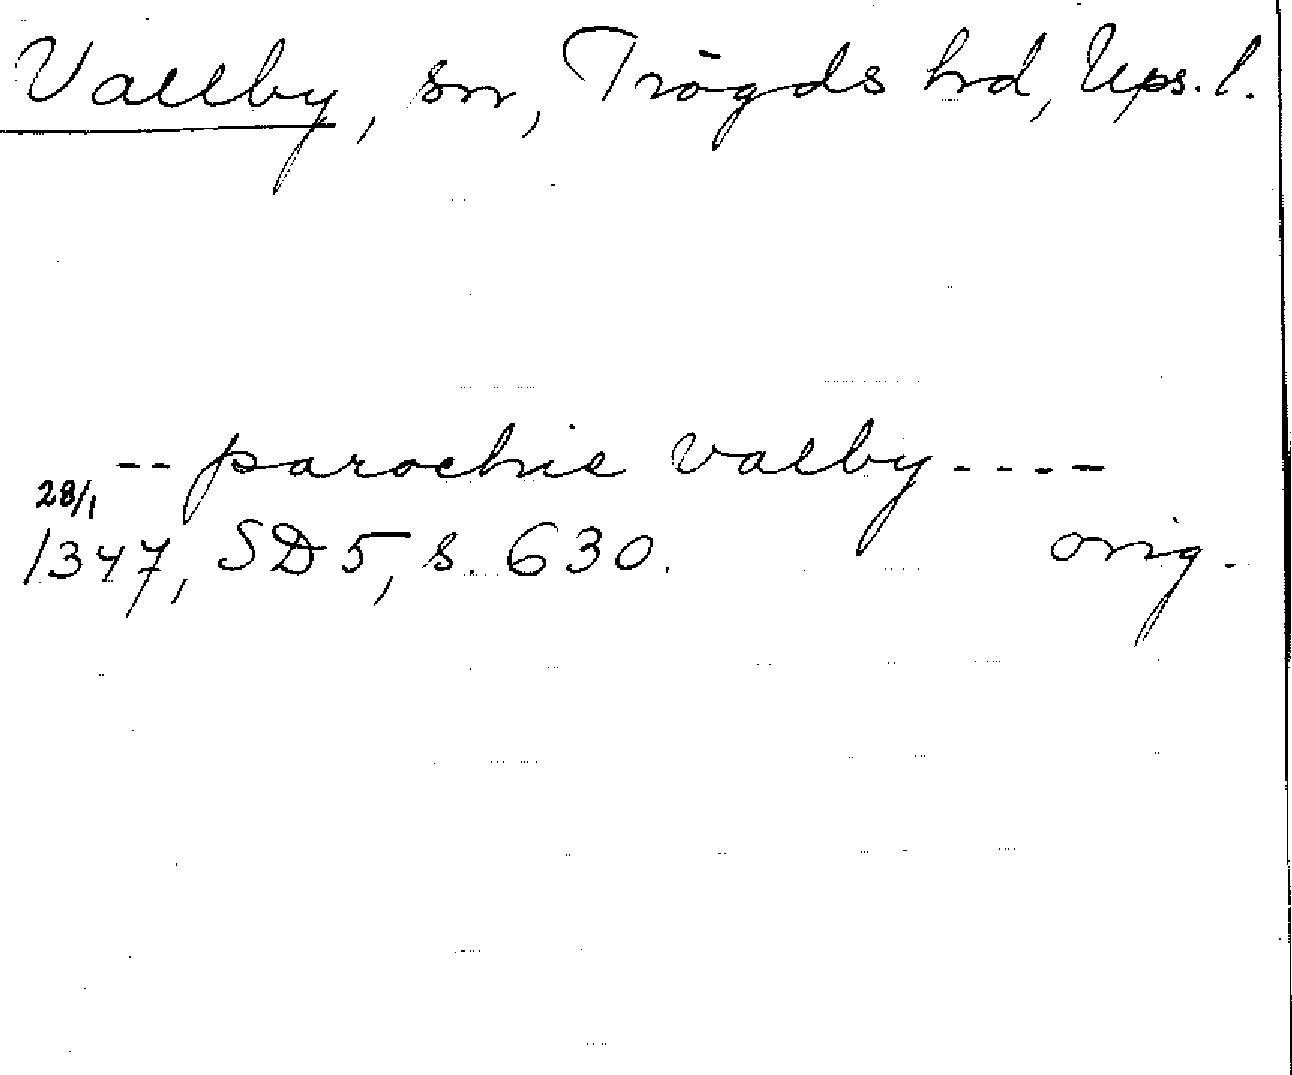 Vallby, sn, Trögds hd, Ups. l.
-- parochie valby ----
28/1
1347, SD 5, s. 630. orig.